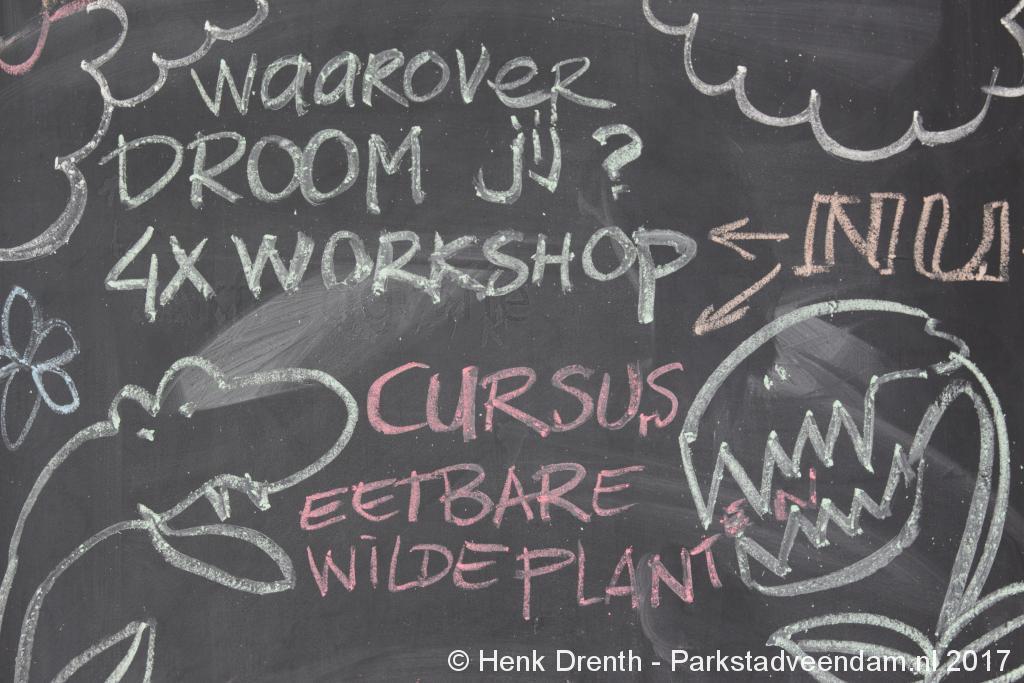 waarover
DROOM jij ?
4X WORKSHOP
NU
CURSUS
EETBARE
WILDEPLANTEN
© Henk Drenth - Parkstadveendam.nl 2017